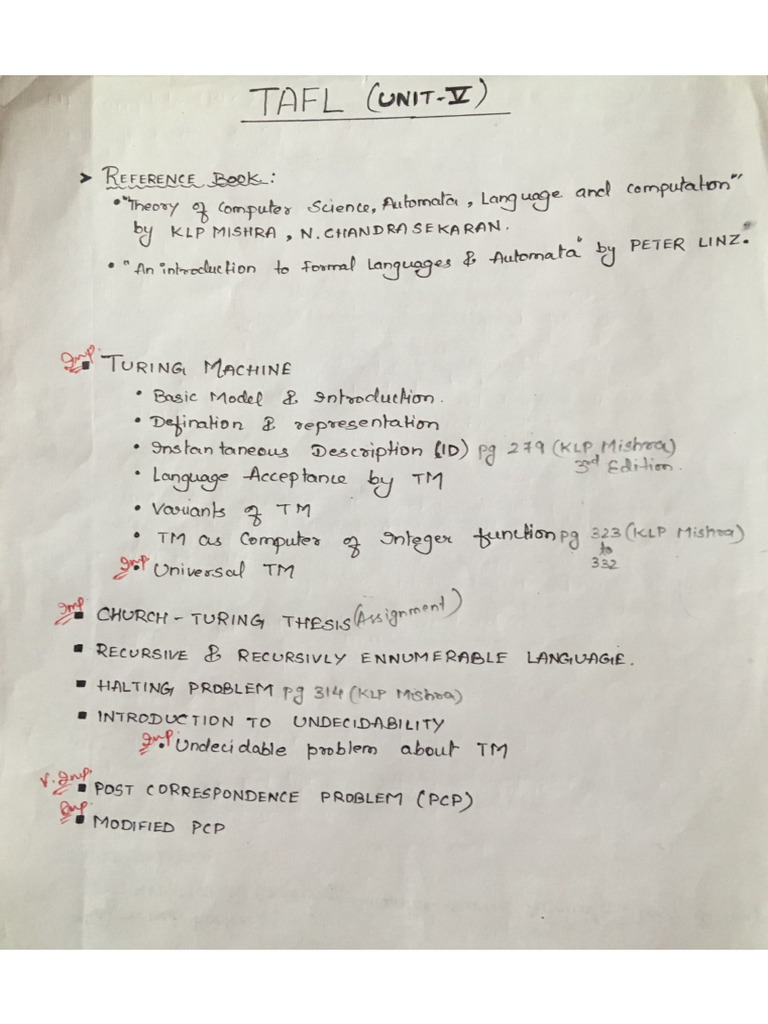 TAFL (UNIT-V)
> REFERENCE BOOK:
• "Theory of Computer Science, Automata, Language and computation"
by KLP MISHRA, N. CHANDRASEKARAN.
• "An introduction to Formal Languages & Automata" by PETER LINZ.
Imp. ▪ TURING MACHINE
• Basic Model & Introduction.
• Defination & representation
• Instantaneous Description (ID) pg 279 (KLP Mishra)
3rd Edition.
• Language Acceptance by TM
• Variants of TM
• TM as Computer of Integer function pg 323 (KLP Mishra)
to
332
Imp • Universal TM
Imp ▪ CHURCH-TURING THESIS (Assignment)
▪ RECURSIVE & RECURSIVLY ENNUMERABLE LANGUAGE.
▪ HALTING PROBLEM pg 314 (KLP Mishra)
▪ INTRODUCTION TO UNDECIDABILITY
Imp • Undecidable problem about TM
V. Imp. ▪ POST CORRESPONDENCE PROBLEM (PCP)
Imp. ▪ MODIFIED PCP